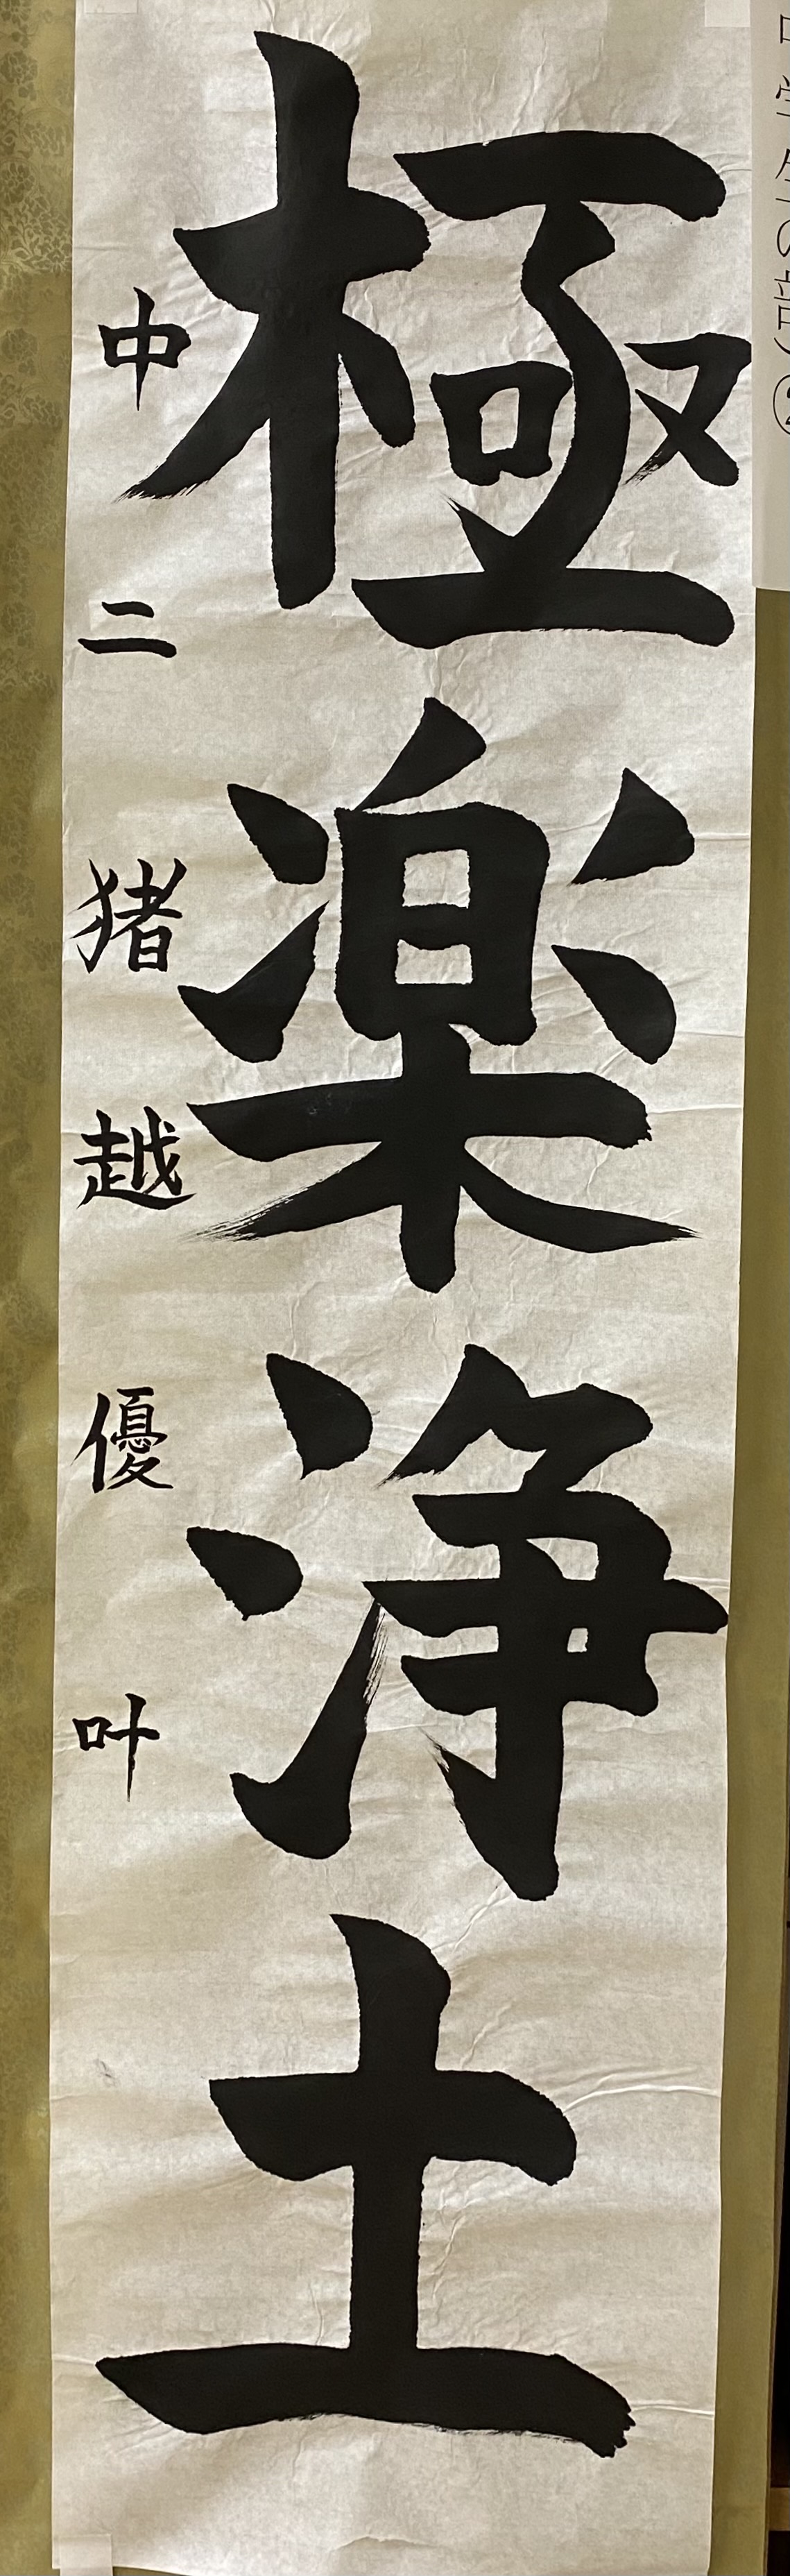 中学生の部)②
極楽浄土
中二 猪越優叶